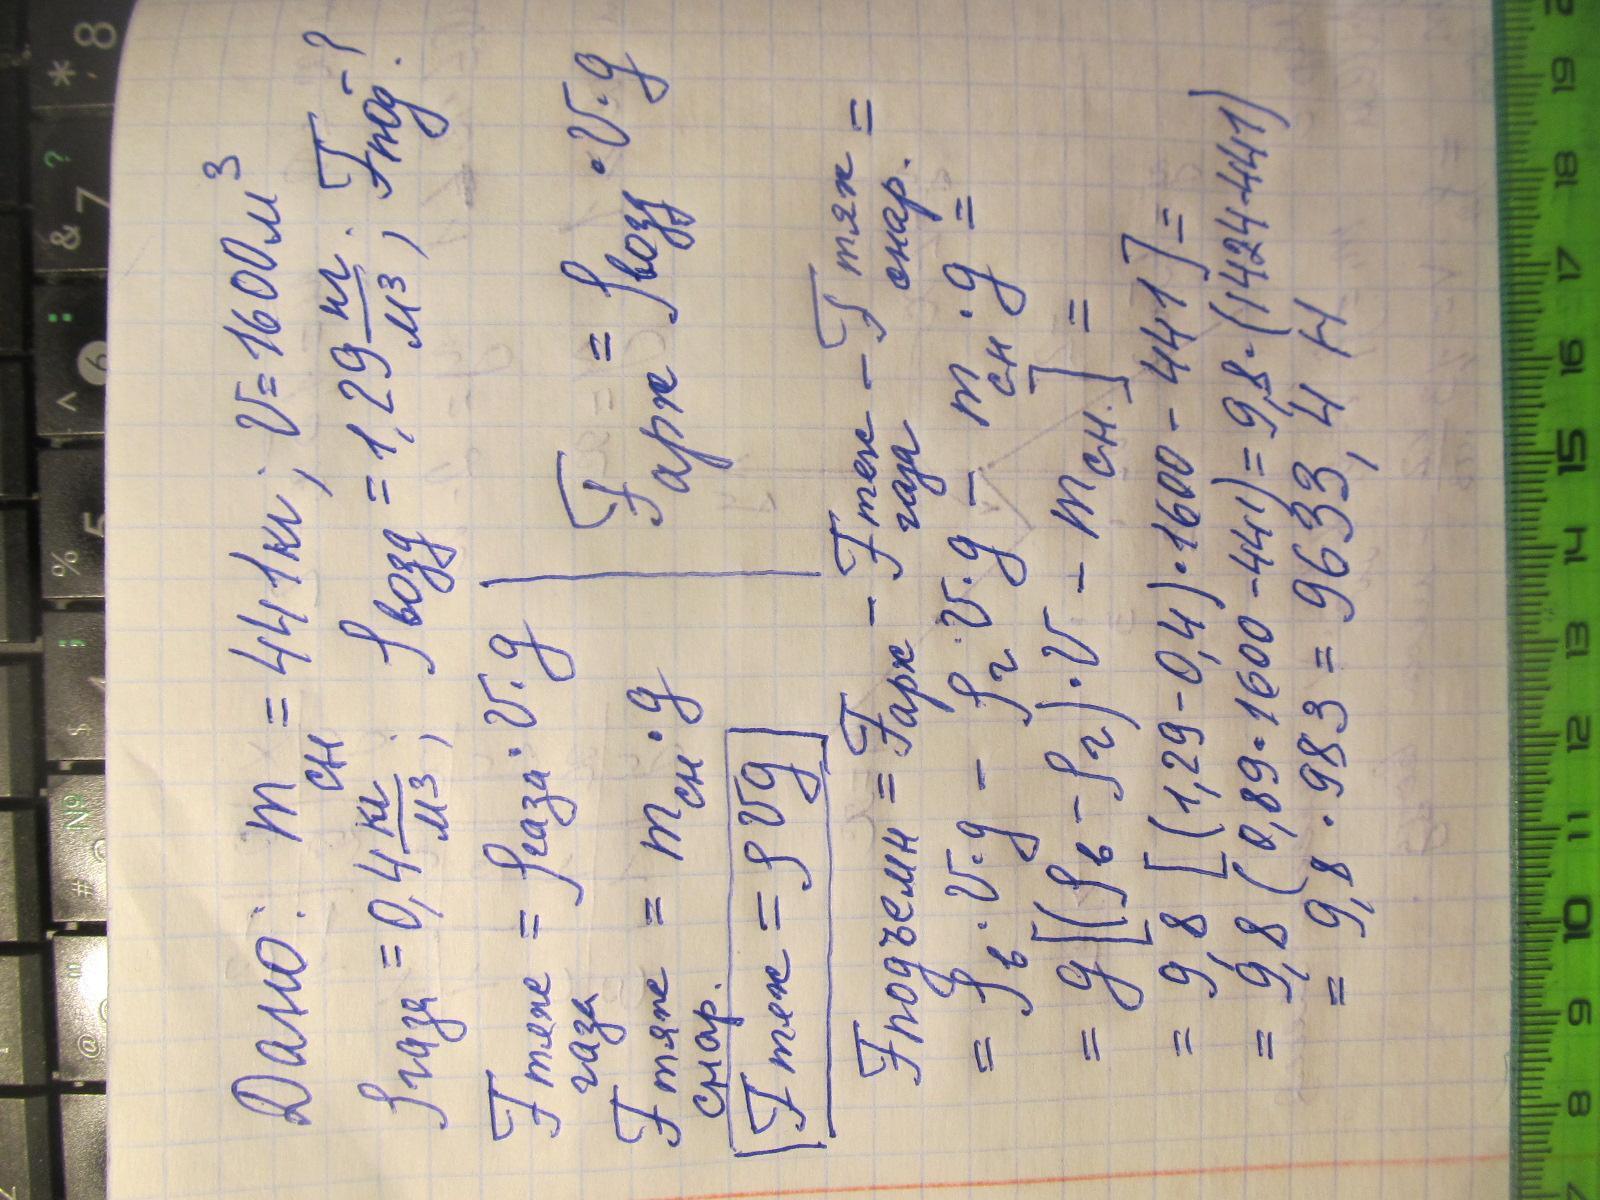 Дано: m сн = 441кг; V=1600м³
ρгаза = 0,4 кг/м3; ρвозд = 1,29 кг/м3; Fпод-?
Fтяж газа = ρгаза·V·g
Fарх = ρвозд·V·g
Fтяж снар. = mсн·g
Fтяж = ρVg
Fподъемн = Fарх - Fтяж газа - Fтяж снар. =
= ρв·V·g - ρг·V·g - mсн·g =
= g[(ρв-ρг)·V - mсн.] =
= 9,8[(1,29-0,4)·1600-441]=
= 9,8(0,89·1600-441)=9,8·(1424-441)
= 9,8·983 = 9633,4 Н
* 8
& 7 ?
^ 6 :
% 5
; $ 4
№ #
" @
8 9 10 11 12 13 14 15 16 17 18 19